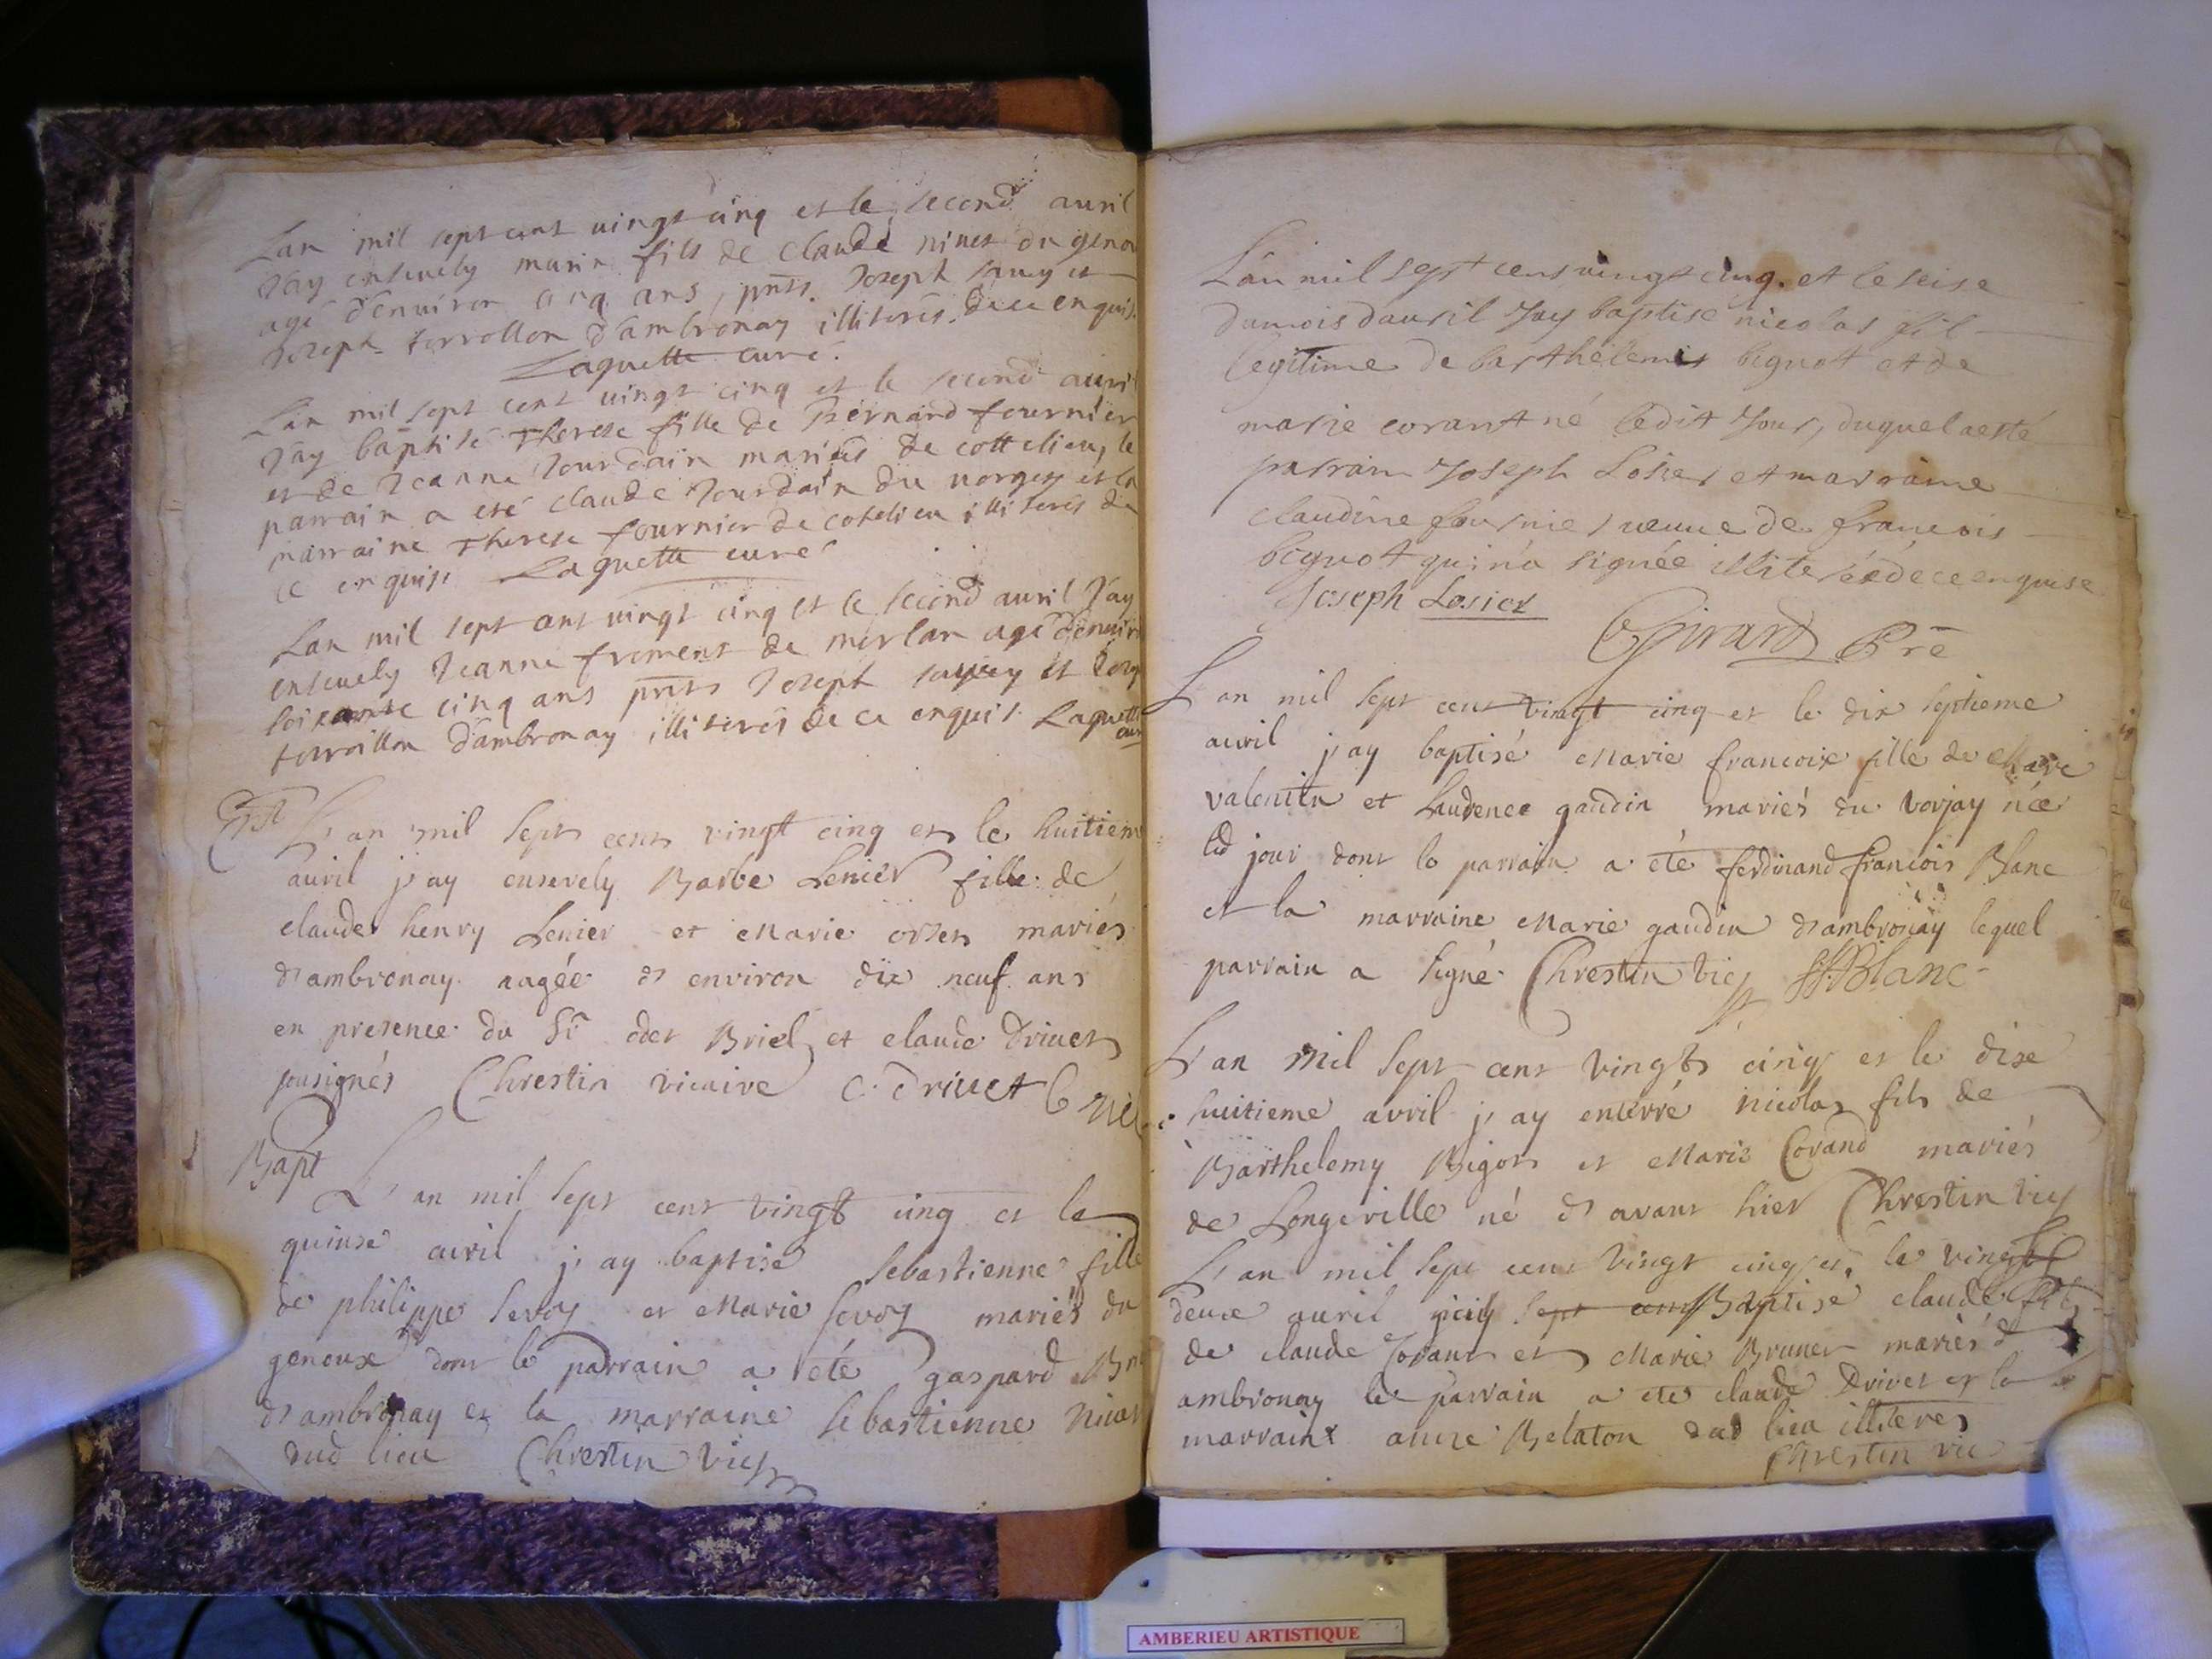 Lan mil sept cent vingt cinq et le second auril
J'ay enseuely marin fils de Claude niuet du geno
agé d'enuiron cinq ans, pnts. Joseph et
Joseph terrollon d'ambronay illiterés de ce enquis.
Laguette curé.
Lan mil sept cent vingt cinq et le second auril
J'ay baptisé Therese fille de Bernard fournier
et de Jeanne Jourdain mariés de cottelieu, le
parrain a esté claude Jourdain du et la
marraine Therese fournier de cotelieu illiterés de
ce enquis. Laguette curé
Lan mil sept cent vingt cinq et le second auril J'ay
enseuely Jeanne froment de merlan agé d'enuir
soixante cinq ans pnts Joseph et
terroillon d'ambronay illiterés de ce enquis. Laguette
cur
L'an mil sept cent vingt cinq et le huitiem
auril j'ay ensevely Barbe Lenier fille de
claude henry Lenier et Marie orset mariés
d'ambronay aagée d'environ dix neuf ans
en presence du Sr odet Briel et claude Drivet
sousignés Chrestin vicaire C. Drivet Briel
Bapt
L'an mil sept cent vingt cinq et le
quinse avril j'ay baptisé Sebastienne fille
de philippe Sevoz et Marie Sevoz mariés du
genoux dont le parrain a été gaspard
d'ambronay et la marraine Sebastienne
dud lieu Chrestin vic
L'an mil sept cens vingt cinq. et le seise
du mois dauril Jay baptisé nicolas fil
legitime de barthelemis bignot et de
marie corant né ledit Jour, duquel aesté
parrain Joseph Losier et marraine
claudine fournier ueuue de francois
bignot qui n'a signée illiterée de ce enquise
Joseph Losier
Girard Pre
L'an mil sept cent vingt cinq et le dix septieme
avril j'ay baptisé Marie francoise fille de Marc
valentin et Laudence gaudin mariés du vorjay née
led jour dont le parrain a été ferdinand francois Blanc
et la marraine Marie gaudin d'ambronay lequel
parrain a signé Chrestin vic ffBlanc
L'an mil sept cent vingt cinq et le dixe
huitieme avril j'ay enterré nicolas fils de
Barthelemy Bigot et Marie Corand mariés
de Longeville né d'avant hier Chrestin vic
L'an mil sept cent vingt cinq et le vingt
deux auril j'ay sept cent Baptisé claude fils
de claude Jorant et Marie Brunet mariés d
ambronay le parrain a eté claude Drivet et la
marraine anne Belaton dud lieu illiteres
Chrestin vic
AMBERIEU ARTISTIQUE